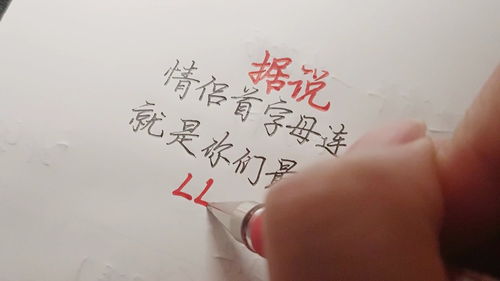 据说
情侣首字母连
就是你们最
LL